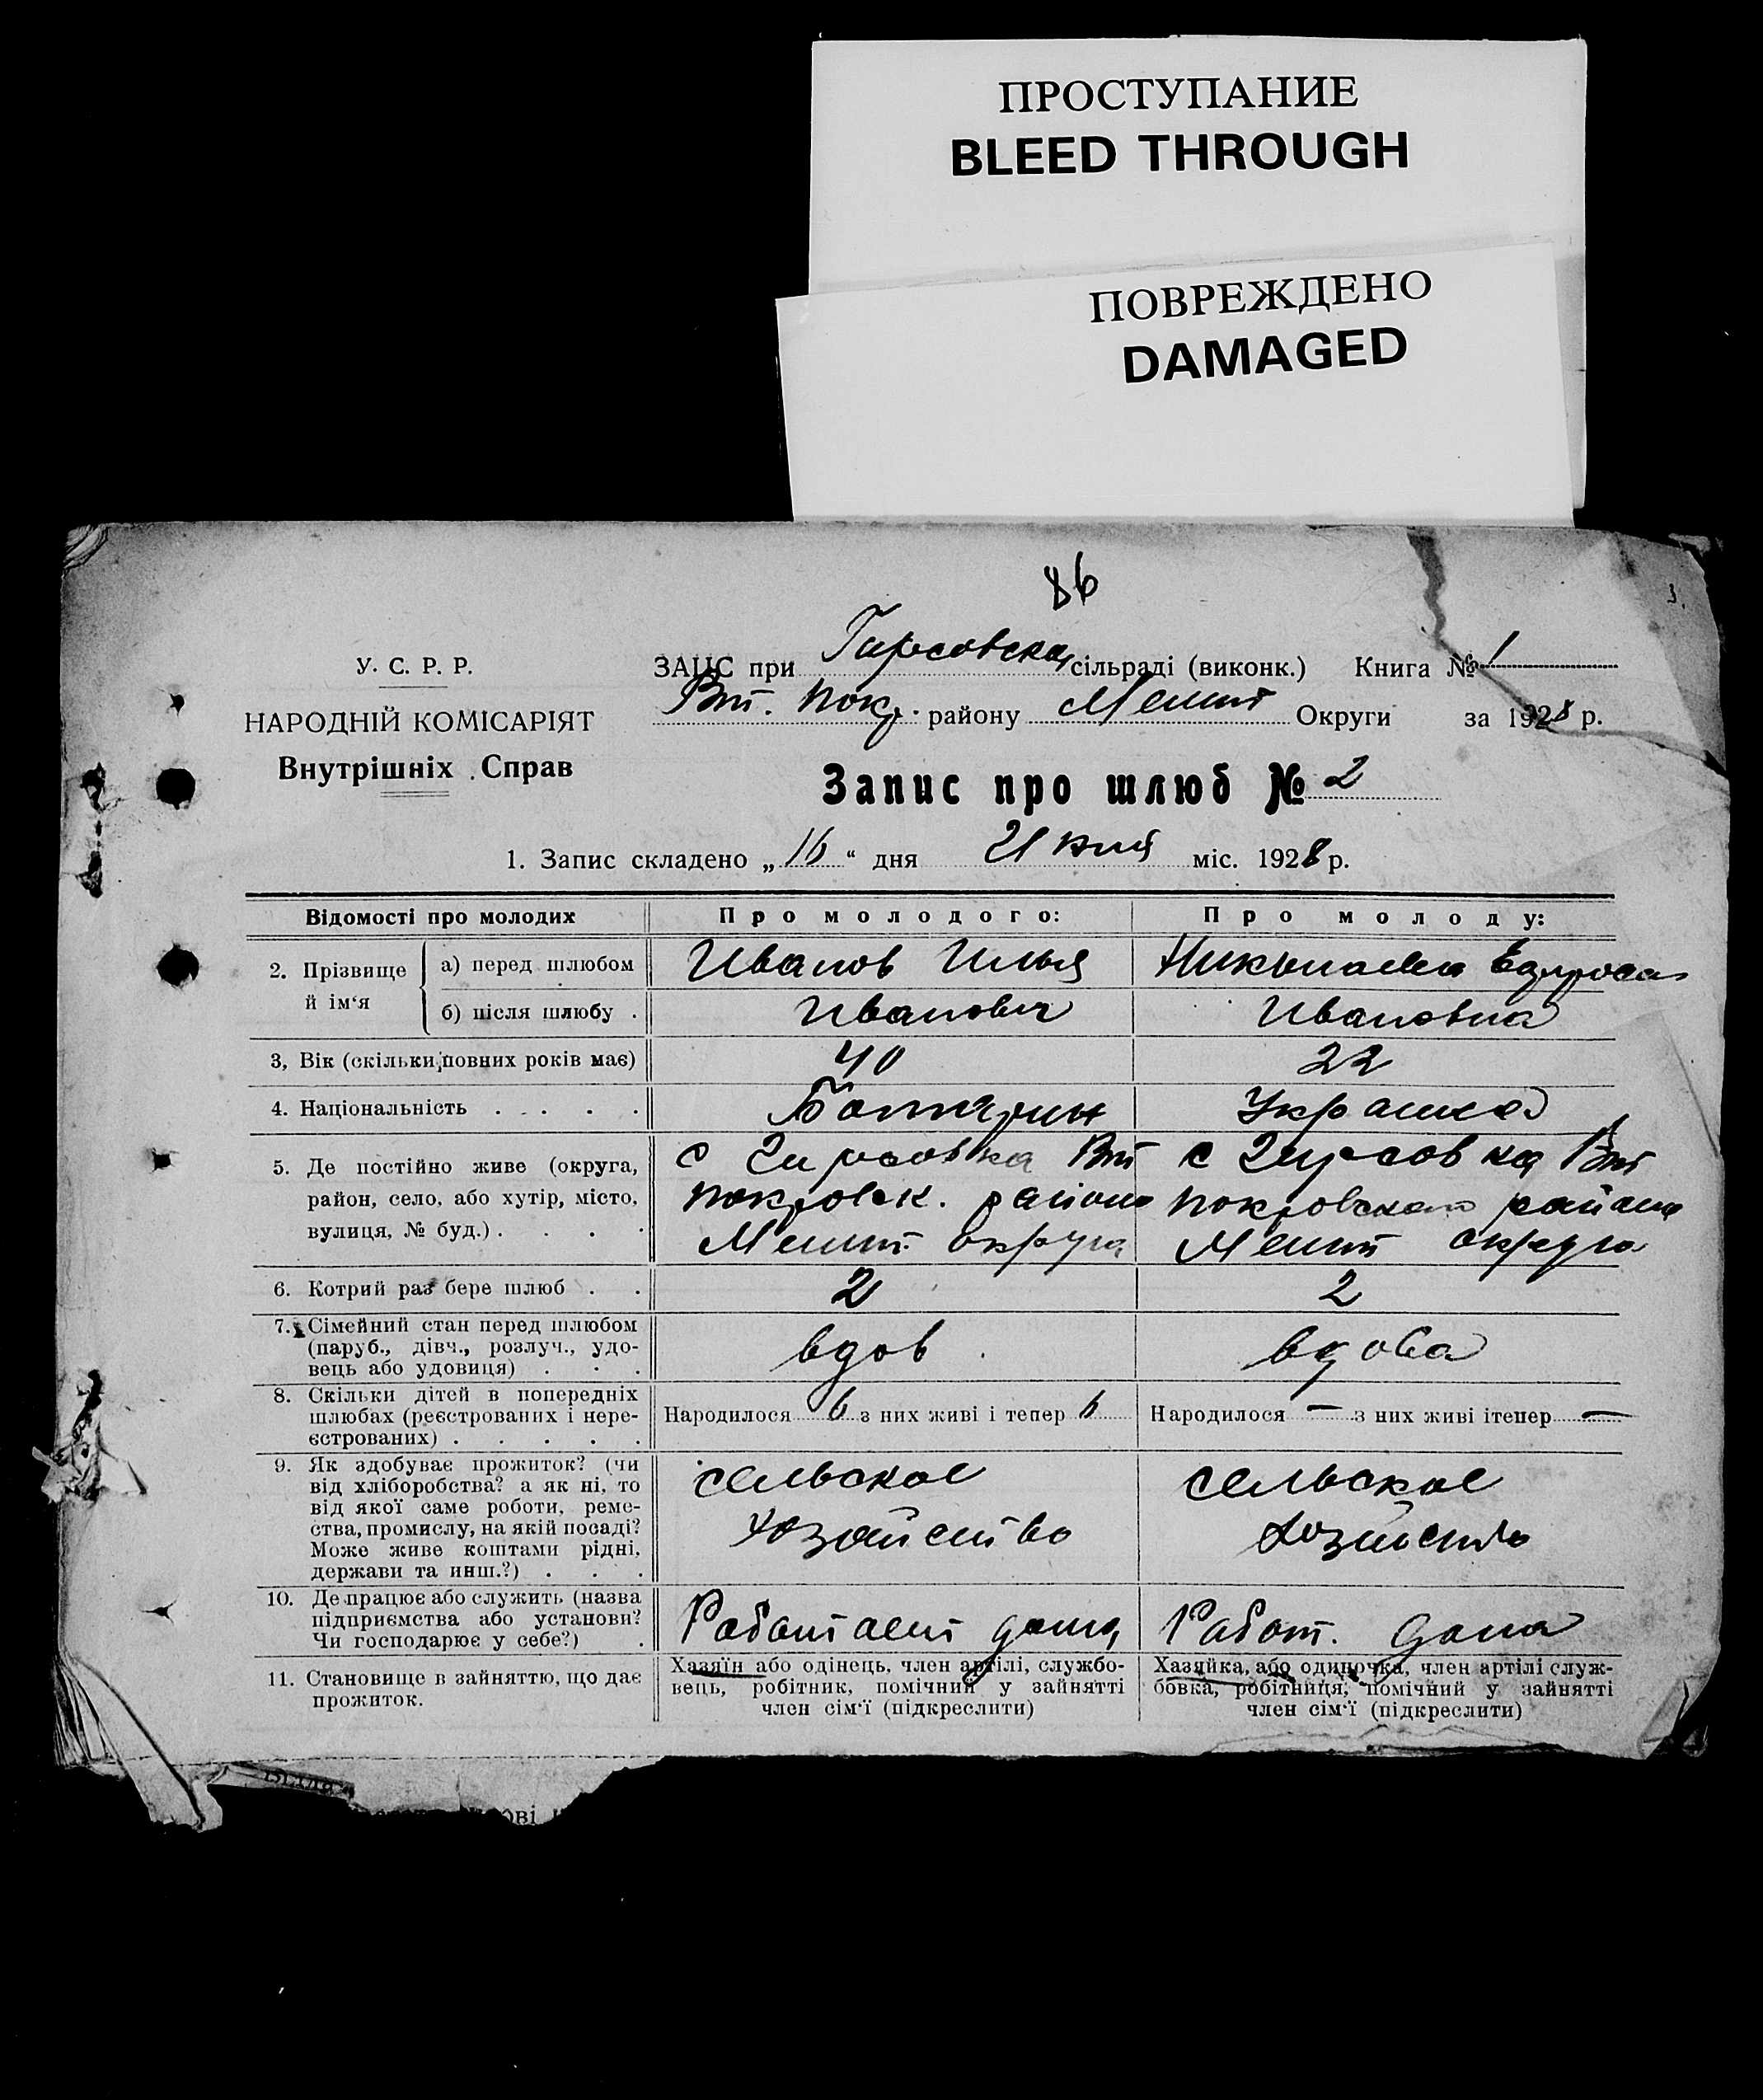 ПРОСТУПАНИЕ
BLEED THROUGH
ПОВРЕЖДЕНО
DAMAGED
86
3.
У. С. Р. Р.
НАРОДНІЙ КОМІСАРІЯТ
Внутрішніх Справ
ЗАЦС при Гирсовска сільраді (виконк.) Книга № 1
Вт. Покр. району Мелит Округи за 1928 р.
Запис про шлюб № 2
1. Запис складено „ 16 “ дня міс. 1928 р.
Відомості про молодих Про молодого: Про молоду:
2. Прізвище й ім‘я а) перед шлюбом Иванов Илья Николаева
б) після шлюбу . Иванович Ивановна
3, Вік (скільки повних років має) 40 22
4. Національність . . . . . Болгарин Украинка
5. Де постійно живе (округа, район, село, або хутір, місто, вулиця, № буд.) . . . .
с Гирсовка Вт
Покровск. района
Мелит. округа
с Гирсовка Вт
Покровского района
Мелит округа
6. Котрий раз бере шлюб . . 2 2
7. Сімейний стан перед шлюбом
(паруб., дівч., розлуч., удо-
вець або удовиця) . . . вдов . вдова
8. Скільки дітей в попередніх
шлюбах (реєстрованих і нере-
єстрованих) . . . . .
Народилося 6 з них живі і тепер 6 Народилося — з них живі ітепер —
9. Як здобуває прожиток? (чи
від хліборобства? а як ні, то
від якої саме роботи, реме-
ства, промислу, на якій посаді?
Може живе коштами рідні,
держави та инш.?) . . .
сельское
хозяйство
сельское
хозяйство
10. Де працює або служить (назва
підприємства або установи?
Чи господарює у себе?) .
Работает дома Работ. дома
11. Становище в зайняттю, що дає
прожиток.
Хазяїн або одінець, член артілі, службо-
вець, робітник, помічний у зайнятті
член сім‘ї (підкреслити)
Хазяйка, або одиночка, член артілі служ-
бовка, робітниця, помічний у зайнятті
член сім‘ї (підкреслити)